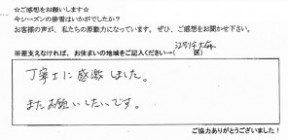 ☆ご感想をお願いします☆
今シーズンの接客はいかがでしたか？
お客様の声が、私たちの原動力になっています。ぜひ、ご感想をお聞かせ下さい。
※差支えなければ、お住まいの地域をご記入ください→（ 区）
丁寧さに感激しました。
またお願いしたいです。
ご協力ありがとうございました！